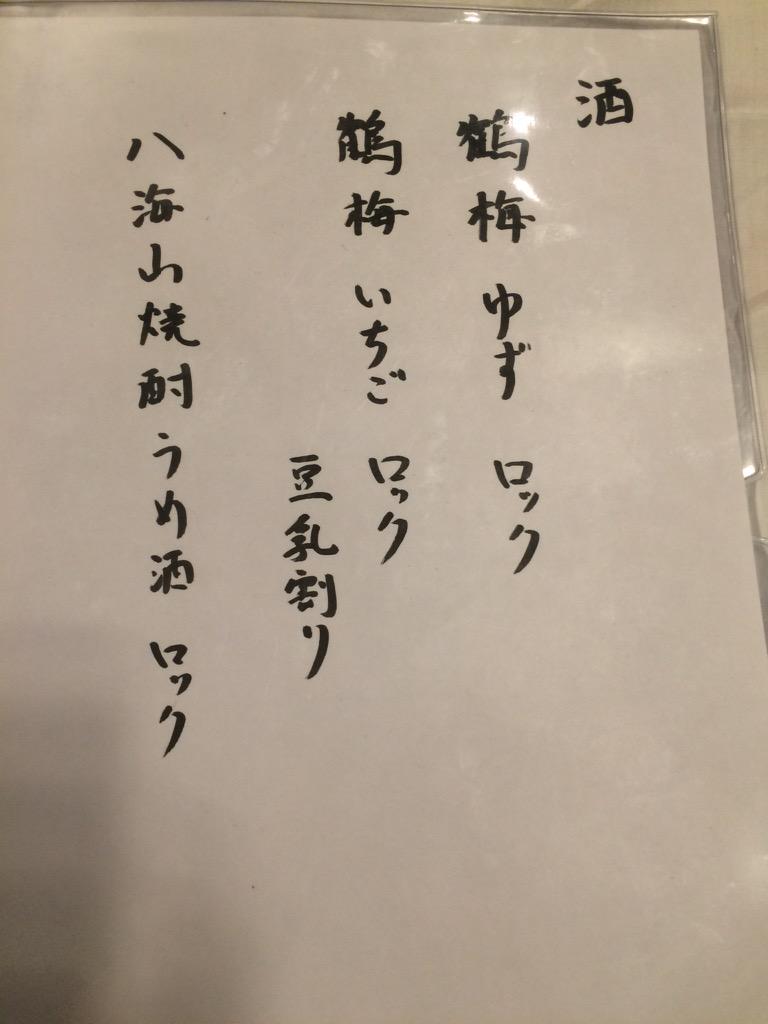 酒
鶴梅 ゆず ロック
鶴梅 いちご ロック
豆乳割り
八海山焼酎うめ酒 ロック